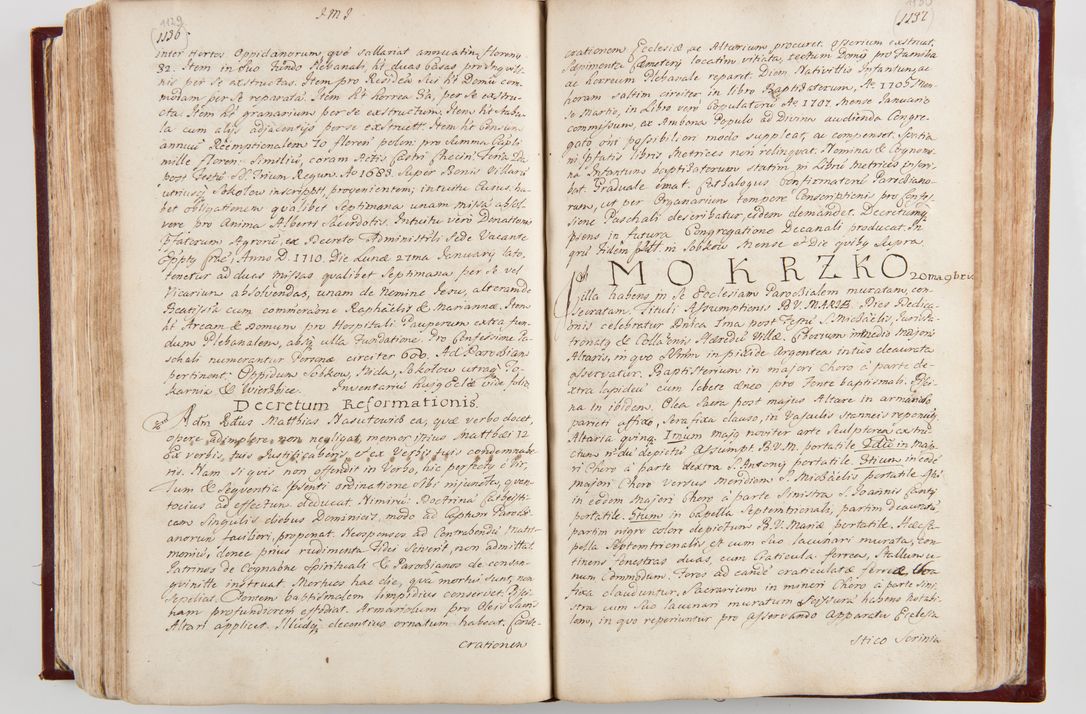 1129
1136
I M I
inter Hortos Oppidanorum, qvé sallariat annuatim floreny
32. Item in suo fundo Plebanali, ht duas basas pro Inqvili-
nis per se exstructas. Item pro Residea sua ht Domū com-
modam per se reparatā. Item ht horrea Dia, per se exstru-
cta. Item ht granarium per se exstructum. Item ht stabu-
la cum alijs adjacentijs per se exstructt. Item ht Censum
annuū Reemptionalem 70 floren polon: pro summa Capli
mille floren: similiū, coram Actis Castri Checin: Feria 2da
post Festū SS. Trium Regum. Ao 1683. super Bonis Villarū
utriusq Sokolow inscriptt. provenientem; intuitu cujus ha-
bet obligationem qvalibet Septimana unam missā absol-
vere pro Anima Alberti Sacerdotis. Intuitu verò Donationis
Pfatorum Agrorū, ex Decreto Administrlis Sede Vacante
Oppty fcte, Anno D. 1710. Die Lunæ 27ma January lato,
tenetur ad duas missas qualibet Septimana per se vel
Vicarium absolvendas, unam de Nomine Jesu, alteram de
Beatissia cum commeraone Raphaelis & Mariannæ. Item
ht Aream & Domum pro Hospitali Pauperum extra fun-
dum Plebanalem, absq ulla fundatione. Pro Confessione Pa-
schali numerantur Personæ circiter 600. Ad Parochiam
pertinent: Oppidum Sobkow, Nida, Sokolow utraq, To-
karnia & Wierzbica. Inventariū hujq Eclæ vide folio
Decretum Reformationis.
Adm Rdus Matthias Hasutowicz ea, quæ verbo docet,
opere adimplere non negligat, memor istius Matthæi 12
Ex verbis tuis justificaberis, & ex verbis tuis condemnabe-
ris. Nam si quis non offendit in Verbo, hic perfecty é Vir.
Tum & Seqventia Psenti ordinatione sibi injuncta, qvan-
tocius ad effectum deducat. Nimirū: Doctrinā Cathesti-
cam singulis diebus Dominicis, modo ad Captum Parochi-
anorum faciliori, proponat. Neosponsos ad Contrahendū Matri-
moniū, donec prius rudimenta fidei sciverit, non admittat.
Patrinos de Cognaōne Spirituali & Parochianos de consan-
gvinitte instruat. Mortuos hac die, qva mortui sunt, non
sepeliat. Fontem baptismalem limpidius conservet. Pisci-
nam profundiorem effodiat. Armariolum pro Oleis Sacris
Altari applicet. Illudq, decentius ornatum habeat. Conse-
crationem
1130
1137
crationem Ecclesiæ ac Altarium procuret. Osserium exstruat.
Sepimenta Cæmeterij locatim vitiata, tectum Domq pro Familia
ac horreum Plebanale reparet. Diem Nativittis Infantum, ac
horam saltim circiter in libro Baptisatorum, Ao 1705 Men-
se Martio, in Libro verò Copulatorū Ao 1707 Mense Januario
commissum, ex Ambona Populo ad Divina audienda Congre-
gato om possibiliori modo suppleat, ac compenset. Spatia
in pfatis libris Metrices non relinqvat. Nomina & Cognom-
na Infantum baptisatorum statim in Librū Metrices inscri-
bat. Graduale emat. Cathalogus Confirmatorū Parochiano-
rum, ut per Organarium tempore Conscriptionis pro Confes-
sione Paschali describatur, eidem demandet. Decretumq
psens in futura Congregatione Decanali producat. In
qrū fidem Datt. in Sobkow Mense & Die quibq supra
MOKRZKO 20 ma 9bris
Villa habens in se Ecclesiam Parochialem muratam, con-
secratam. Tituli Assumptionis B.V. MARIÆ. Dies Dedica-
onis celebratur Dnica Ima post Festū S. Michaelis, Juris Pa-
tronatq & Collaōnis Hæredū Villæ. Ciborium in medio majoris
Altaris, in quo SSmm in pixide Argentea intus deaurata
asservatur. Baptisterium in majori Choro à parte de-
xtra lapideū cum lebete æneo pro Fonte baptismali. Pisci-
na in ibidem. Olea Sacra post majus Altare in armariolo
parieti affixo, sera fixa clauso, in Vasculis Stanneis reponutq.
Altaria quinq. Imum majq noviter arte Sculptorea exstru-
ctum nō dū depictū Assumpt. B.V.M. portatile. IIdū in maj-
ri Choro à parte dextra S. Antonij portatile. IIItium in eodē
majori Choro versus Meridiem S. Michaelis portatile. IVtū
in eodem Majori Choro à parte Sinistra S. Joannis Cantij
portatile. Vtum in Capella Septemtrionali, partim deauratū,
partim nigro colore depictum B.V. Mariæ portatile. Hæc Ca-
pella Septemtrionalis est cum suo lacunari murata, con-
tinens fenestras duas, cum Craticula ferrea, Stallum u-
num Commodum. Fores ad eandē craticulatæ ferreæ sera
fixa clauduntur. Sacrarium in minori Choro à parte sini-
stra cum suo lacunari muratum Scissurā habens notabi-
lem, in quo reperiuntur pro asservando Apparatu Ecclesia
stico Scrinia